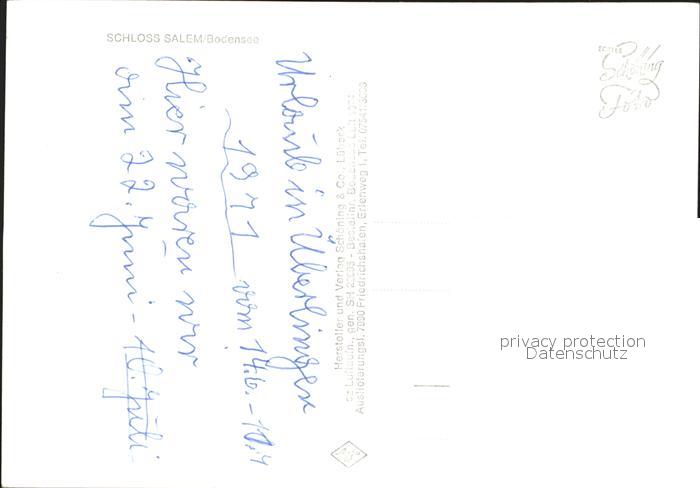 SCHLOSS SALEM/Bodensee
Urlaub in Überlingen
1971 vom 14.6. - 10.7
Hier waren wir
am 22. Juni - 10. Juli -
Hersteller und Verlag Schöning & Co., Lübeck
Luftaufn., gen. SH
Auslieferungsl. 7990 Friedrichshafen, Erlenweg 1, Tel.
Schöning
Foto
privacy protection
Datenschutz